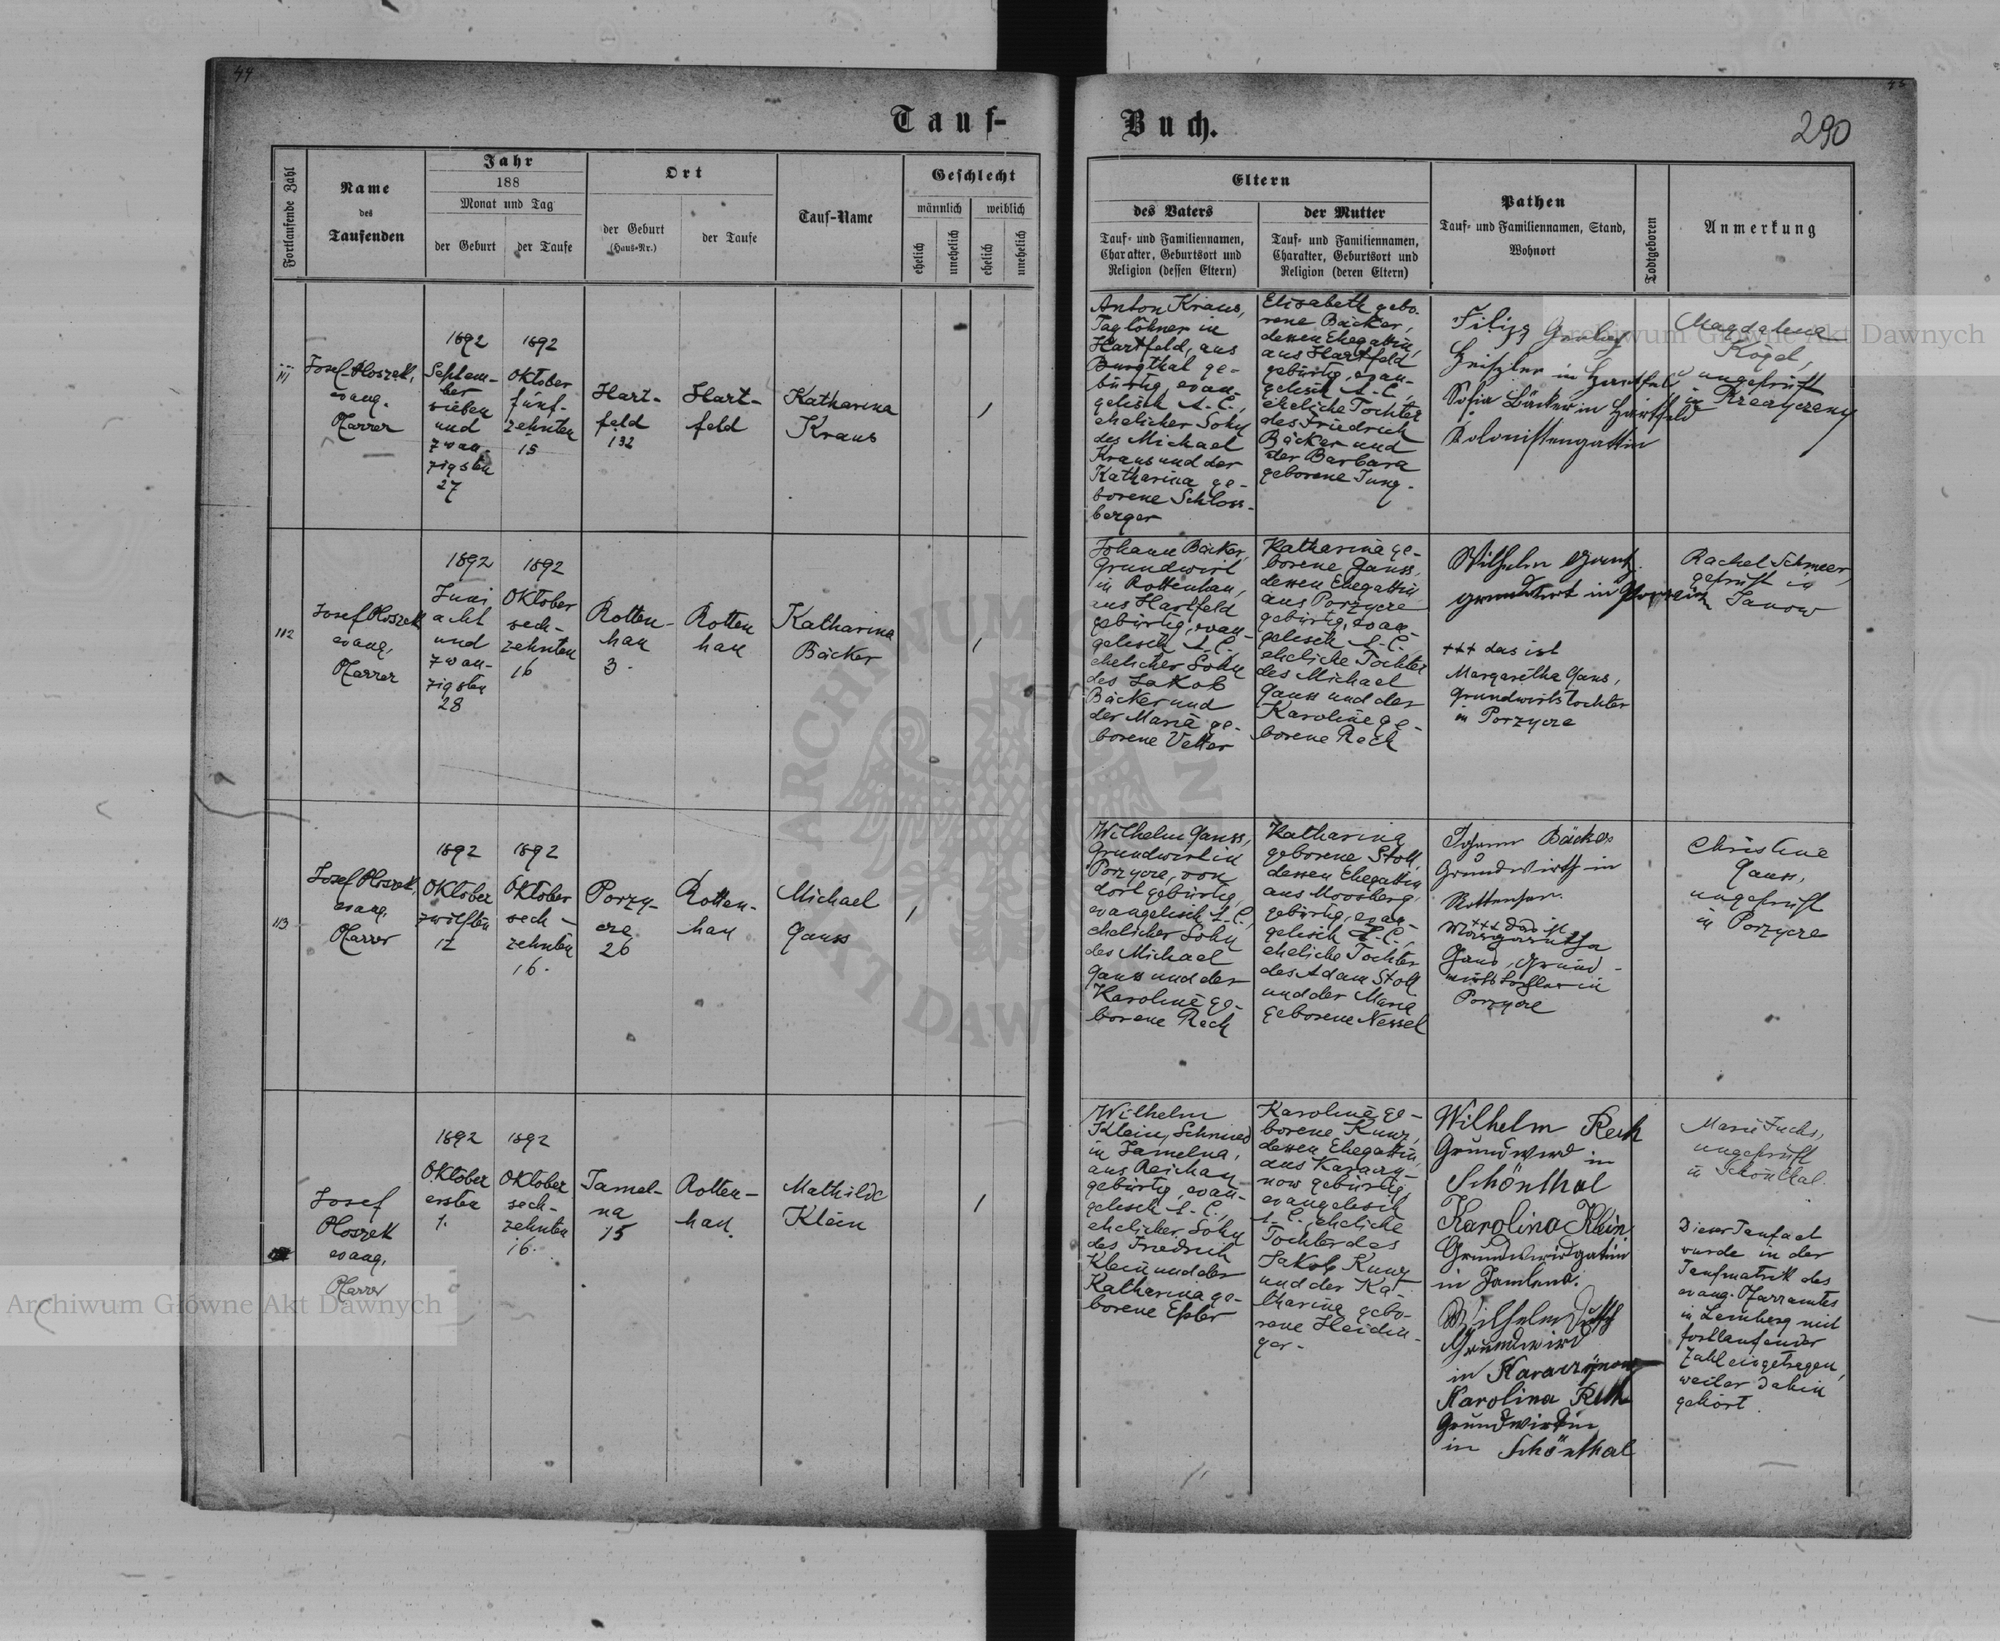 44
Tauf-
Fortlaufende Zahl
Name
des
Taufenden
Jahr
188
Monat und Tag
der Geburt
der Taufe
Ort
der Geburt
(Haus-Nr.)
der Taufe
Tauf-Name
Geschlecht
männlich
weiblich
ehelich
unehelich
ehelich
unehelich
Buch.
290
Eltern
des Vaters
Tauf- und Familiennamen,
Charakter, Geburtsort und
Religion (dessen Eltern)
der Mutter
Tauf- und Familiennamen,
Charakter, Geburtsort und
Religion (deren Eltern)
Pathen
Tauf- und Familiennamen, Stand,
Wohnort
Todtgeboren
Anmerkung
111
Josef Ploszek,
evang.
Pfarrer
1892
Septem-
ber
sieben
und
zwan-
zigsten
27
1892
Oktober
fünf-
zehnten
15
Hart-
feld
132
Hart-
feld
Katharina
Kraus
1
Anton Kraus,
Taglöhner in
Hartfeld, aus
Burgthal ge-
bürtig, evan-
gelisch A. C.,
ehelicher Sohn
des Michael
Kraus und der
Katharina ge-
borene Schloss-
berger
Elisabeth gebo-
rene Bäcker,
dessen Ehegattin,
aus Hartfeld
gebürtig, evan-
gelisch A. C.,
eheliche Tochter
des Friedrich
Bäcker und
der Barbara
geborene Jung.
Filipp
in Hartfeld
Sofia Bäcker in Hartfeld
Kolonistengattin
Magdalena
Kögel,
ungeprüft
in
112
Josef Ploszek
evang.
Pfarrer
1892
Juni
acht
und
zwan-
zigsten
28
1892
Oktober
sech-
zehnten
16
Rotten-
han
3.
Rotten
han
Katharina
Bäcker
1
Johann Bäcker,
Grundwirt
in Rottenhan,
aus Hartfeld
gebürtig, evan-
gelisch A. C.,
ehelicher Sohn
des Jakob
Bäcker und
der Maria ge-
borene Vetter
Katharina ge-
borene Gauss,
dessen Ehegattin
aus Porzycze
gebürtig, evan-
gelisch A. C.,
eheliche Tochter
des Michael
Gauss und der
Karoline ge-
borene Rech
Wilhelm
in
+++ das ist
Margaretha Gaus,
Grundwirtstochter
in Porzycze
Rachel Schmeer,
geprüft in
Janow
113
Josef Ploszek,
evang.
Pfarrer
1892
Oktober
zwölften
12
1892
Oktober
sech-
zehnten
16.
Porzy-
cze
26
Rotten-
han
Michael
Gauss
1
Wilhelm Gauss,
Grundwirt in
Porzycze, von
dort gebürtig,
evangelisch A. C.,
ehelicher Sohn
des Michael
Gauss und der
Karoline ge-
borene Rech
Katharina
geborene Stoll,
dessen Ehegattin
aus Moosberg,
gebürtig, evan-
gelisch A. C.,
eheliche Tochter
des Adam Stoll
und der Maria
geborene Nessel
Johann Bäcker
Grundwirth in
Rottenhan.
+++ das ist
Margaretha
Gaus, Grund-
wirtstochter in
Porzycze
Christine
Gauss,
ungeprüft
in Porzycze
Josef
Ploszek
evang.
Pfarrer
1892
Oktober
ersten
1.
1892
Oktober
sech-
zehnten
16.
Jamel-
na
15
Rotten-
han.
Mathilde
Klein
1
Wilhelm
Klein, Schmied
in Jamelna,
aus Reichau
gebürtig, evan-
gelisch A. C.,
ehelicher Sohn
des Friedrich
Klein und der
Katharina ge-
borene Epler
Karoline ge-
borene Kunz,
dessen Ehegattin,
aus Karaczy-
now gebürtig,
evangelisch
A. C. eheliche
Tochter des
Jakob Kunz
und der Ka-
tharina gebo-
rene Heidin-
ger.
Wilhelm Rech
Grundwird in
Schönthal
Karolina Klein
Grundwirdgatin
in Jamlena.
Wilhelm
Grundwird
in Karaczynow
Karolina Rech
Grundwirdin
in Schönthal
Marie Fuchs,
ungeprüft
in Schönthal.
Dieser Taufact
wurde in der
Taufmatrik des
evang. Pfarramtes
in Lemberg mit
fortlaufender
Zahl eingetragen,
weil er dahin
gehört.
Archiwum Główne Akt Dawnych
Archiwum Główne Akt Dawnych